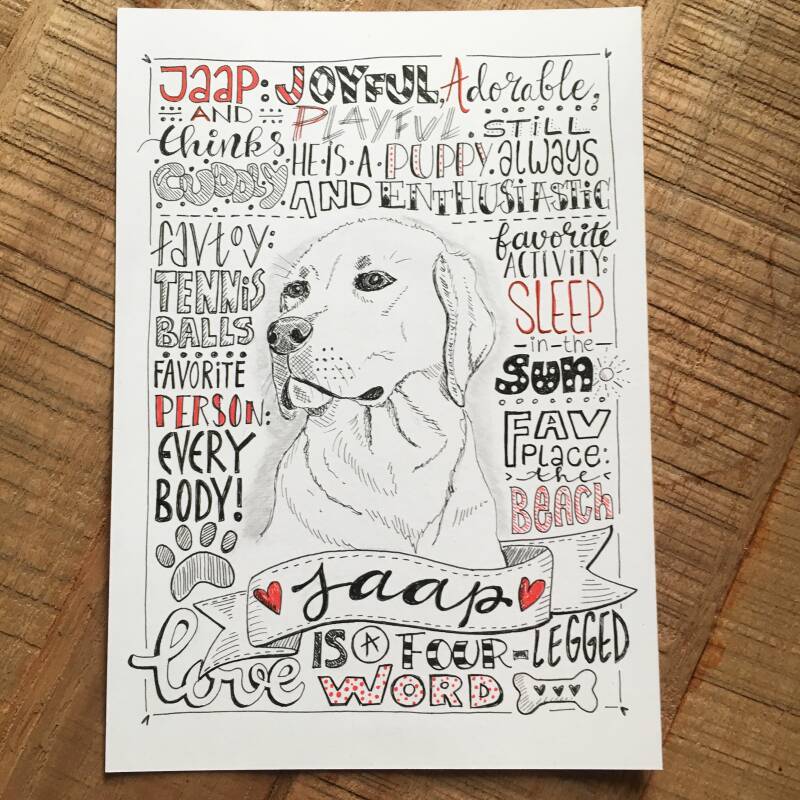 Jaap: JOYFUL, Adorable,
AND PLAYFUL. STILL
thinks HE·IS·A·PUPPY. always
CUDDLY AND ENTHUSIASTIC
fav toy:
TENNiS
BALLS
FAVORiTE
PERSON:
EVERY
BODY!
favorite
ACTiViTY:
SLEEP
-in-the-
Sun
FAV
PLace:
the
BEacH
Jaap
love IS A FOUR-LEGGED
WORD